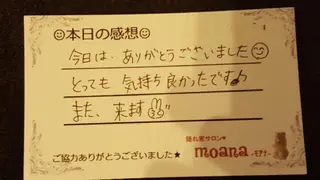 ☺本日の感想☺
今日は、ありがとうございました☺
とっても 気持ち良かったです♪
また、来ます
隠れ家サロン♥
moana -モアナ-
ご協力ありがとうございました★